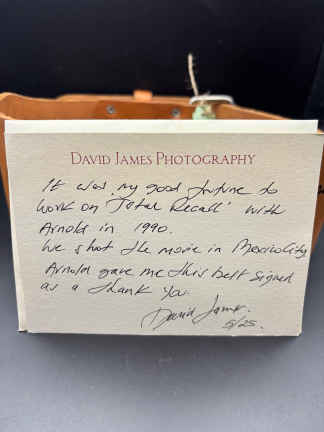 DAVID JAMES PHOTOGRAPHY
It was my good fortune to
work on 'Total Recall' with
Arnold in 1990.
We shot the movie in Mexico City
Arnold gave me this belt signed
as a thank you.
David James.
5/25.